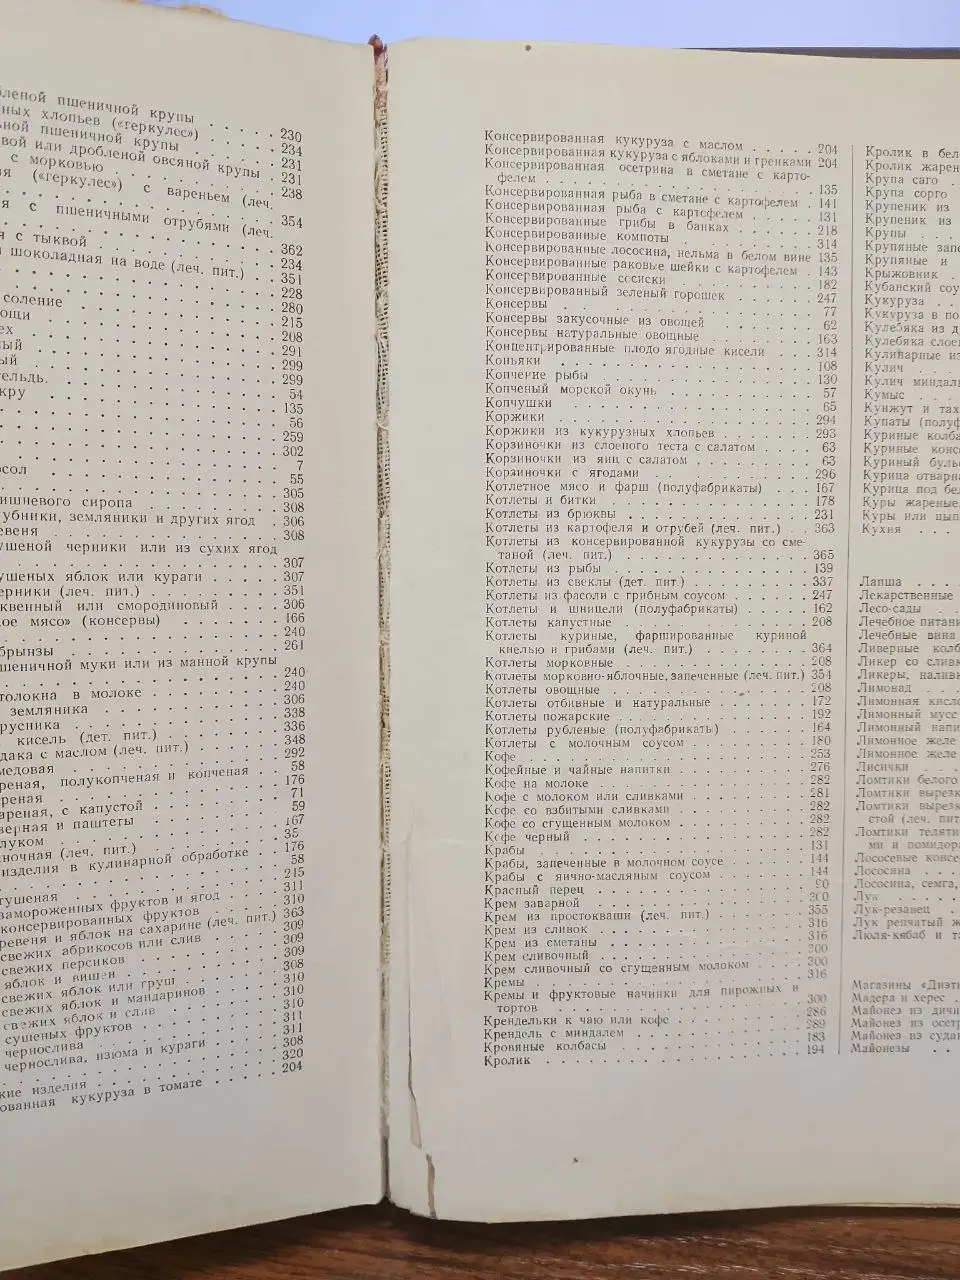 пшеничной крупы . . . . . 230
ных хлопьев («геркулес») . . . . . 234
ьной пшеничной крупы . . . . . 231
вой или дробленой овсяной крупы . 231
с морковью . . . . . 238
я («геркулес») с вареньем (леч.
354
я с пшеничными отрубями (леч.
362
я с тыквой . . . . . 234
шоколадная на воде (леч. пит.) . . 351
228
соление . . . . . 280
ощи . . . . . 215
ех . . . . . 208
ный . . . . . 291
ый . . . . . 299
ельдь. . . . . 299
кру . . . . . 54
135
56
259
302
7
осол . . . . . 55
305
ишневого сиропа . . . . . 308
убники, земляники и других ягод . 306
евеня . . . . . 308
ушеной черники или из сухих ягод
307
ушеных яблок или кураги . . . . . 307
ерники (леч. пит.) . . . . . 351
квенный или смородиновый . . . . 306
ое мясо» (консервы) . . . . . 166
240
брынзы . . . . . 261
шеничной муки или из манной крупы
240
толокна в молоке . . . . . 240
земляника . . . . . 306
русника . . . . . 338
кисель (дет. пит.) . . . . . 336
дака с маслом (леч. пит.) . . . . 348
медовая . . . . . 292
реная, полукопченая и копченая . . 58
реная . . . . . 176
ареная, с капустой . . . . . 71
верная и паштеты . . . . . 59
луком . . . . . 167
ночная (леч. пит.) . . . . . 35
изделия в кулинарной обработке . . 176
58
215
тушеная . . . . . 311
замороженных фруктов и ягод . . . 310
консервированных фруктов . . . . 363
ревеня и яблок на сахарине (леч. пит.) 309
свежих абрикосов или слив . . . . 309
свежих персиков . . . . . 309
яблок и вишен . . . . . 308
свежих яблок или груш . . . . . 310
свежих яблок и мандаринов . . . . 310
свежих яблок и слив . . . . . 310
сушеных фруктов . . . . . 311
чернослива . . . . . 311
чернослива, изюма и кураги . . . . 308
320
кие изделия . . . . . 204
ованная кукуруза в томате . . . . .
Консервированная кукуруза с маслом . . . . 204
Консервированная кукуруза с яблоками и гренками 204
Консервированная осетрина в сметане с карто-
фелем . . . . . 135
Консервированная рыба в сметане с картофелем . 141
Консервированная рыба с картофелем . . . . 131
Консервированные грибы в банках . . . . . 218
Консервированные компоты . . . . . 314
Консервированные лососина, нельма в белом вине 135
Консервированные раковые шейки с картофелем . 143
Консервированные сосиски . . . . . 182
Консервированный зеленый горошек . . . . . 247
Консервы . . . . . 77
Консервы закусочные из овощей . . . . . 62
Консервы натуральные овощные . . . . . 163
Концентрированные плодо ягодные кисели . . 314
Коньяки . . . . . 108
Копчение рыбы . . . . . 130
Копченый морской окунь . . . . . 57
Копчушки . . . . . 65
Коржики . . . . . 294
Коржики из кукурузных хлопьев . . . . . 293
Корзиночки из слоеного теста с салатом . . . 63
Корзиночки из яиц с салатом . . . . . 63
Корзиночки с ягодами . . . . . 296
Котлетное мясо и фарш (полуфабрикаты) . . . 167
Котлеты и битки . . . . . 178
Котлеты из брюквы . . . . . 231
Котлеты из картофеля и отрубей (леч. пит.) . . 363
Котлеты из консервированной кукурузы со сме-
таной (леч. пит.) . . . . . 365
Котлеты из рыбы . . . . . 139
Котлеты из свеклы (дет. пит.) . . . . . 337
Котлеты из фасоли с грибным соусом . . . . 247
Котлеты и шницели (полуфабрикаты) . . . . 162
Котлеты капустные . . . . . 208
Котлеты куриные, фаршированные куриной
кнелью и грибами (леч. пит.) . . . . . 364
Котлеты морковные . . . . . 208
Котлеты морковно-яблочные, запеченные (леч. пит.) 354
Котлеты овощные . . . . . 208
Котлеты отбивные и натуральные . . . . . 172
Котлеты пожарские . . . . . 192
Котлеты рубленые (полуфабрикаты) . . . . . 164
Котлеты с молочным соусом . . . . . 180
Кофе . . . . . 253
Кофейные и чайные напитки . . . . . 276
Кофе на молоке . . . . . 282
Кофе с молоком или сливками . . . . . 281
Кофе со взбитыми сливками . . . . . 282
Кофе со сгущенным молоком . . . . . 282
Кофе черный . . . . . 282
Крабы . . . . . 131
Крабы, запеченные в молочном соусе . . . . 144
Крабы с яично-масляным соусом . . . . . 144
Красный перец . . . . . 90
Крем заварной . . . . . 300
Крем из простокваши (леч. пит.) . . . . . 355
Крем из сливок . . . . . 316
Крем из сметаны . . . . . 316
Крем сливочный . . . . . 300
Крем сливочный со сгущенным молоком . . . . 300
Кремы . . . . . 316
Кремы и фруктовые начинки для пирожных и
тортов . . . . . 300
Крендельки к чаю или кофе . . . . . 286
Крендель с миндалем . . . . . 289
Кровяные колбасы . . . . . 183
Кролик . . . . . 194
Кролик в бел
Кролик жарен
Крупа саго .
Крупа сорго
Крупеник из
Крупеник из
Крупы . . .
Крупяные запе
Крупяные и
Крыжовник .
Кубанский соу
Кукуруза . .
Кукуруза в по
Кулебяка из д
Кулебяка слое
Кулинарные из
Кулич . . .
Кулич миндаль
Кумыс . . .
Кунжут и тах
Купаты (полуф
Куриные колба
Куриные консе
Куриный бульо
Курица отварна
Курица под бел
Куры жареные.
Куры или цып
Кухня . . . .
Лапша . . . .
Лекарственные
Лесо-сады . .
Лечебное питани
Лечебные вина
Ливерные колб
Ликер со сливк
Ликеры, наливк
Лимонад . . .
Лимонная кисло
Лимонный мусс
Лимонный напит
Лимонное желе
Лимонное желе
Лисички . . .
Ломтики белого
Ломтики вырезк
Ломтики вырезк
стой (леч. пит
Ломтики теляти
ми и помидора
Лососевые консе
Лососина . . .
Лососина, семга,
Лук . . . .
Лук-резанец .
Лук репчатый ж
Люля-кябаб и та
Магазины «Диэти
Мадера и херес .
Майонез из дичи
Майонез из осетр
Майонез из судак
Майонезы . .